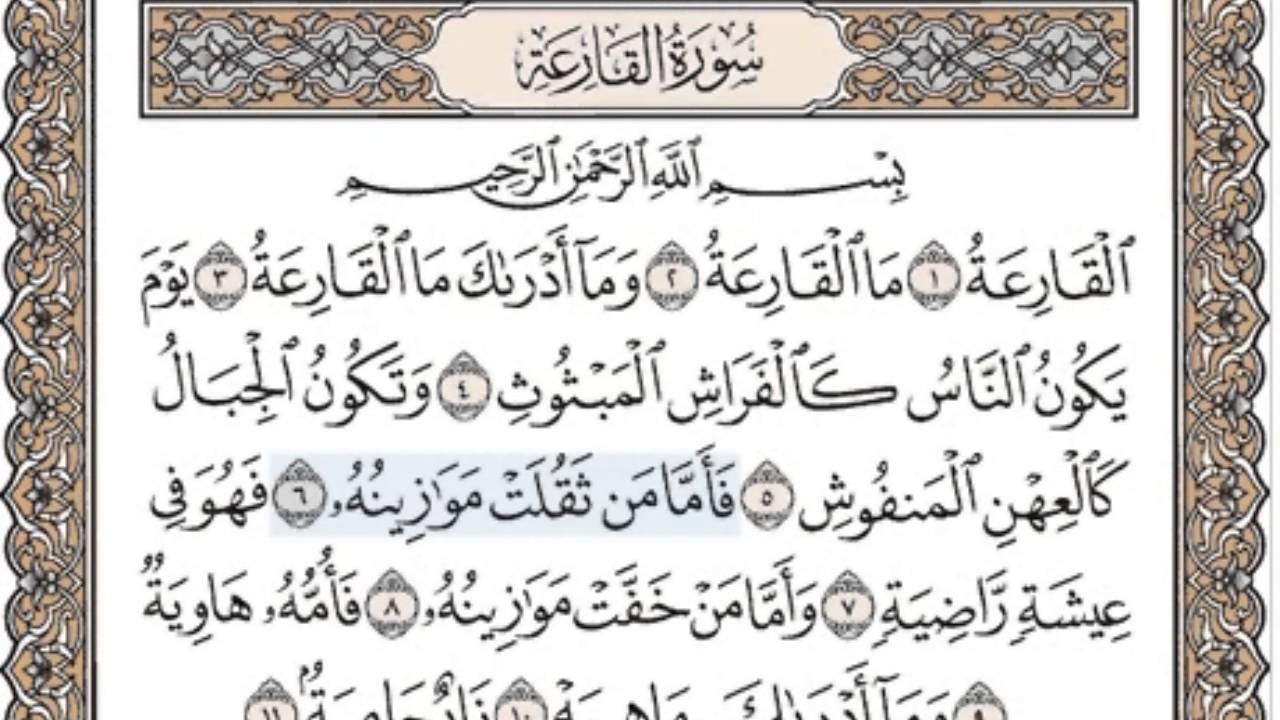 سُورَةُ القَارِعَةِ
بِسْمِ ٱللَّهِ ٱلرَّحْمَٰنِ ٱلرَّحِيمِ
ٱلْقَارِعَةُ ١ مَا ٱلْقَارِعَةُ ٢ وَمَآ أَدْرَىٰكَ مَا ٱلْقَارِعَةُ ٣ يَوْمَ
يَكُونُ ٱلنَّاسُ كَٱلْفَرَاشِ ٱلْمَبْثُوثِ ٤ وَتَكُونُ ٱلْجِبَالُ
كَٱلْعِهْنِ ٱلْمَنفُوشِ ٥ فَأَمَّا مَن ثَقُلَتْ مَوَٰزِينُهُۥ ٦ فَهُوَ فِى
عِيشَةٍ رَّاضِيَةٍ ٧ وَأَمَّا مَنْ خَفَّتْ مَوَٰزِينُهُۥ ٨ فَأُمُّهُۥ هَاوِيَةٌ
٩ وَمَآ أَدْرَىٰكَ مَا هِيَهْ ١٠ نَارٌ حَامِيَةٌۢ ١١